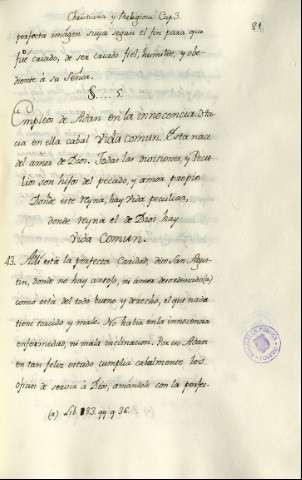 Christiana y Religiosa Cap. 3.
81
perfecta imàgen suya segun el fin para que
fue criado, de ser criado fiel, humilde, y obe-
diente à su Señor.
§.... 5.
Empleos de Adan en la innocencia. Esta-
cia en ella cabal vida comun. Esta nace
del amor de Dios. Todas las divisiones, y Pecu-
lios son hijos del pecado, y amor proprio
Donde este Reyna, hay vida peculiar,
donde reyna el de Dios hay
Vida Comun.
13. Alli està la perfecta Caridad, dice San Agus-
tin, donde no hay antojo, ni amor desordenado (a)
como esta del todo bueno y derecho, el que nada
tiene torcido y malo. No habia en la innocencia
enfermedad, ni mala inclinacion. Por eso Adan
en tan feliz estado cumplia cabalmente los
oficios de servir à Dios, amandole con la perfec-
(a) Lib. 83. qq. q. 36.